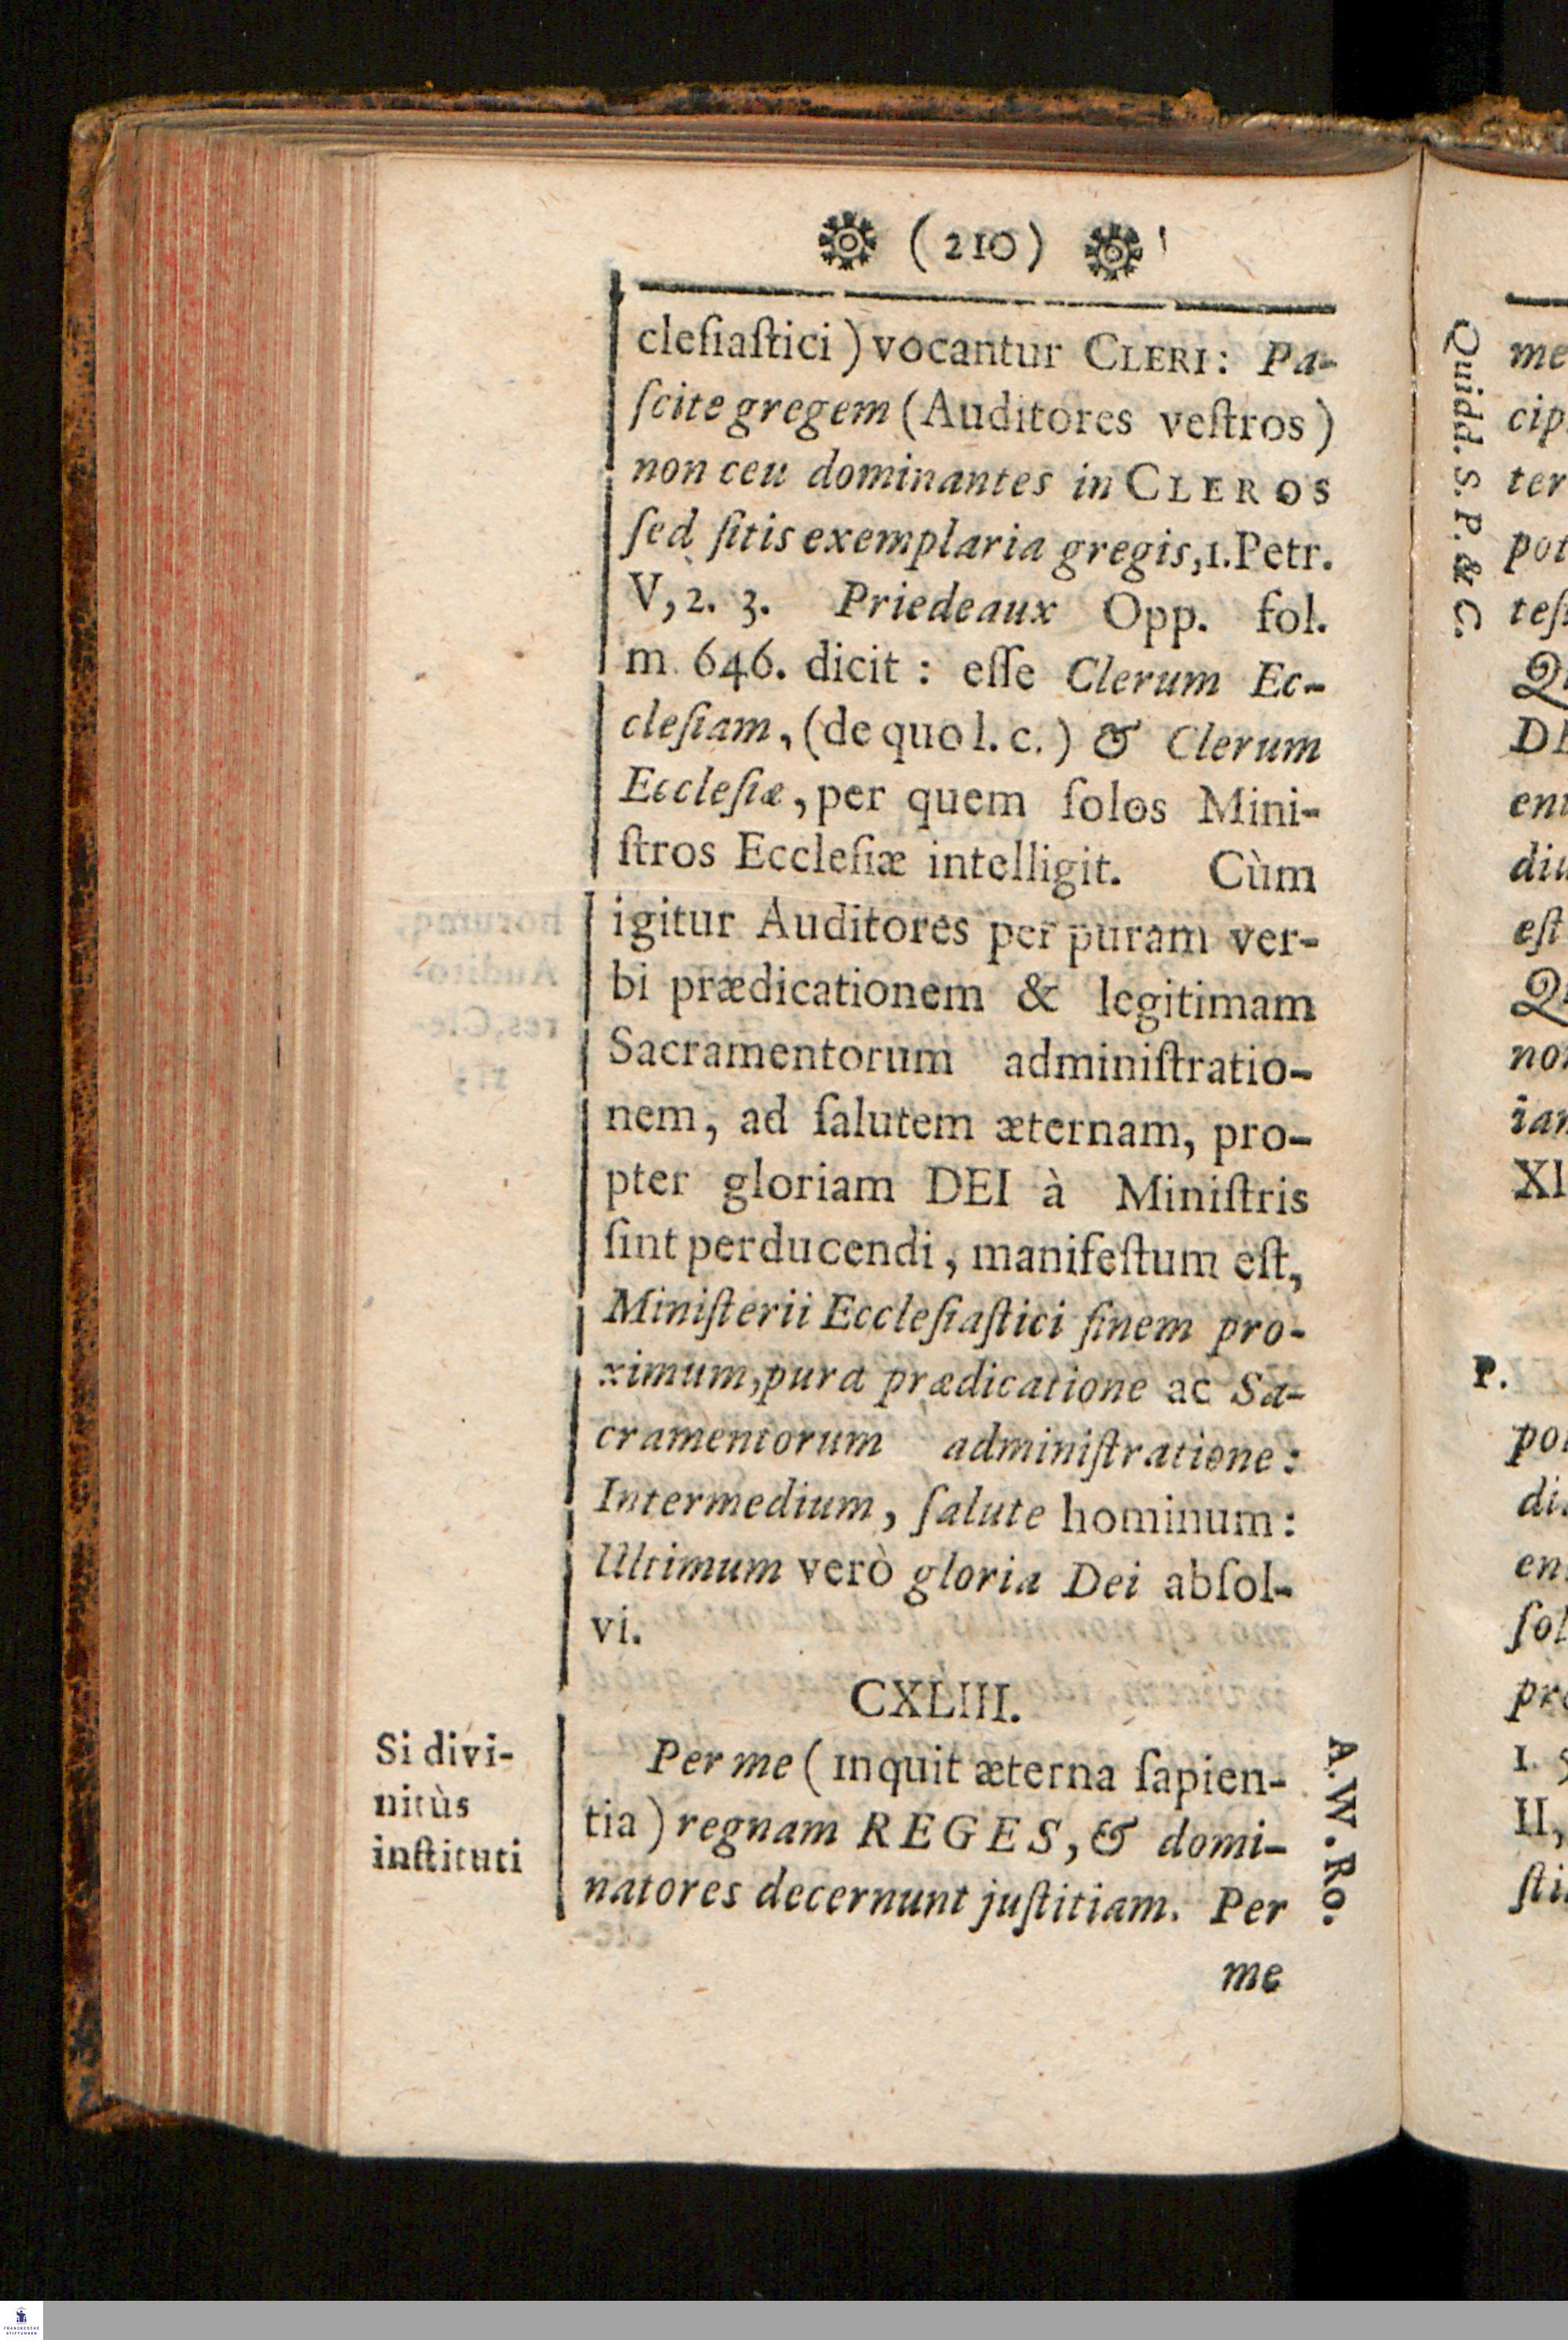 (210)
cleſiaſtici) vocantur CLERI: Pa-
ſcite gregem (Auditores veſtros)
non ceu dominantes in CLEROS
ſed ſitis exemplaria gregis, 1. Petr.
V, 2. 3. Priedeaux Opp. fol.
m 646. dicit: eſſe Clerum Ec-
cleſiam, (de quo l. c.) & Clerum
Eccleſiæ, per quem ſolos Mini-
ſtros Eccleſiæ intelligit. Cùm
igitur Auditores per puram ver-
bi prædicationem & legitimam
Sacramentorum adminiſtratio-
nem, ad ſalutem æternam, pro-
pter gloriam DEI à Miniſtris
ſint perducendi, manifeſtum eſt,
Miniſterii Eccleſiaſtici finem pro-
ximum, pura prædicatione ac Sa-
cramentorum adminiſtratione:
Intermedium, ſalute hominum:
Ultimum verò gloria Dei abſol-
vi.
CXLIII.
Si divi-
nitùs
inſtituti
Per me (inquit æterna ſapien-
tia) regnam REGES, & domi-
natores decernunt juſtitiam. Per
me
A. W. Ro.
Quidd. S. P. & C.
me
cip
ter
pot
teſ
DE
diu
eſt
XI
P.
di
en
ſol
1.
II,
ſti
FRANCKESCHE
STIFTUNGEN